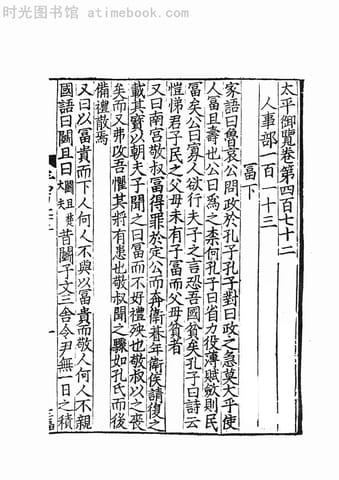 时光图书馆 - atimebook.com
太平御覽卷第四百七十二
人事部一百一十三
冨下
家語曰魯哀公問政於孔子孔子對曰政之急莫大乎使
人冨且壽也公曰爲之柰何孔子曰省力役薄賦歛則民
冨矣公曰寡人欲行夫子之言恐吾國貧矣孔子曰詩云
愷悌君子民之父毋未有子冨而父毋貧者
又曰南宫敬叔冨得罪於定公而奔衛朞年衛侯請復之
載其寳以朝夫子聞之曰冨而不好禮殃也敬叔以之喪
矣而又弗改吾懼其將有患也敬叔聞之驟如孔氏而後
備禮散焉
又曰以冨貴而下人何人不與以冨貴而敬人何人不親
國語曰鬭且曰鬭且楚大夫昔鬭子文三舍令尹無一日之積